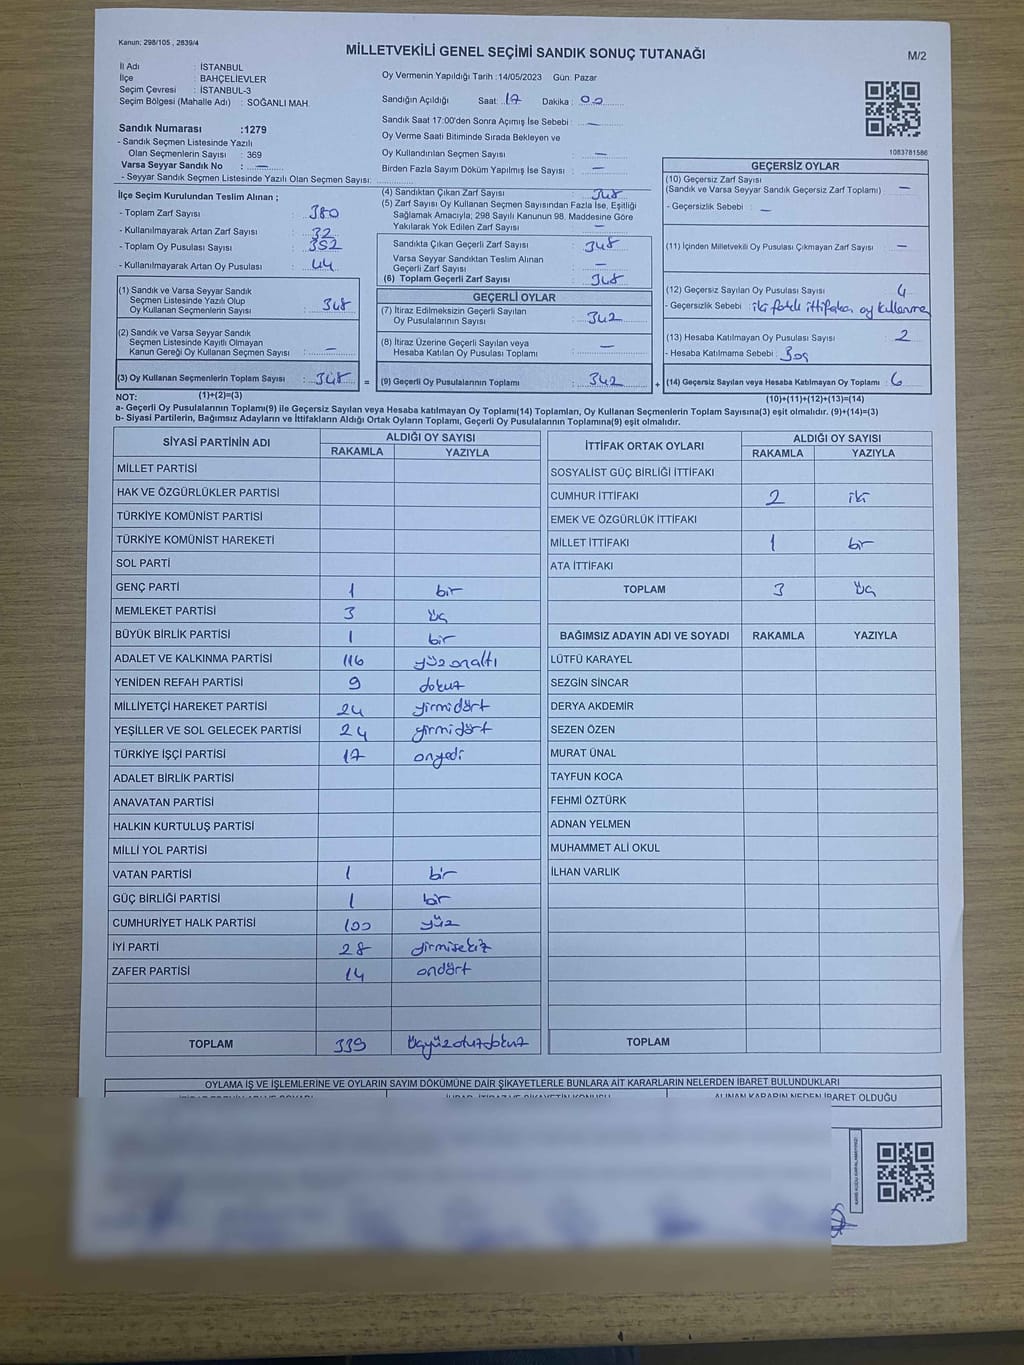 Kanun: 298/105 , 2839/4
MİLLETVEKİLİ GENEL SEÇİMİ SANDIK SONUÇ TUTANAĞI
M/2
İl Adı : İSTANBUL
İlçe : BAHÇELİEVLER
Seçim Çevresi : İSTANBUL-3
Seçim Bölgesi (Mahalle Adı) : SOĞANLI MAH.
Sandık Numarası :1279
- Sandık Seçmen Listesinde Yazılı
Olan Seçmenlerin Sayısı : 369
Varsa Seyyar Sandık No : —
- Seyyar Sandık Seçmen Listesinde Yazılı Olan Seçmen Sayısı:
Oy Vermenin Yapıldığı Tarih :14/05/2023 Gün: Pazar
Sandığın Açıldığı Saat: 17 Dakika : 00
Sandık Saat 17:00'den Sonra Açımış İse Sebebi : —
Oy Verme Saati Bitiminde Sırada Bekleyen ve
Oy Kullandırılan Seçmen Sayısı : —
Birden Fazla Sayım Döküm Yapılmış İse Sayısı : —
1083781586
İlçe Seçim Kurulundan Teslim Alınan ;
- Toplam Zarf Sayısı : 380
- Kullanılmayarak Artan Zarf Sayısı : 32
- Toplam Oy Pusulası Sayısı : 392
- Kullanılmayarak Artan Oy Pusulası : 44
(1) Sandık ve Varsa Seyyar Sandık
Seçmen Listesinde Yazılı Olup
Oy Kullanan Seçmenlerin Sayısı : 348
(2) Sandık ve Varsa Seyyar Sandık
Seçmen Listesinde Kayıtlı Olmayan
Kanun Gereği Oy Kullanan Seçmen Sayısı : —
(3) Oy Kullanan Seçmenlerin Toplam Sayısı : 348 =
(4) Sandıktan Çıkan Zarf Sayısı : 348
(5) Zarf Sayısı Oy Kullanan Seçmen Sayısından Fazla İse, Eşitliği
Sağlamak Amacıyla; 298 Sayılı Kanunun 98. Maddesine Göre
Yakılarak Yok Edilen Zarf Sayısı : —
Sandıkta Çıkan Geçerli Zarf Sayısı : 348
Varsa Seyyar Sandıktan Teslim Alınan
Geçerli Zarf Sayısı : —
(6) Toplam Geçerli Zarf Sayısı : 348
GEÇERLİ OYLAR
(7) İtiraz Edilmeksizin Geçerli Sayılan
Oy Pusulalarının Sayısı : 342
(8) İtiraz Üzerine Geçerli Sayılan veya
Hesaba Katılan Oy Pusulası Toplamı : —
(9) Geçerli Oy Pusulalarının Toplamı : 342 +
GEÇERSİZ OYLAR
(10) Geçersiz Zarf Sayısı
(Sandık ve Varsa Seyyar Sandık Geçersiz Zarf Toplamı) : —
- Geçersizlik Sebebi : —
(11) İçinden Milletvekili Oy Pusulası Çıkmayan Zarf Sayısı : —
(12) Geçersiz Sayılan Oy Pusulası Sayısı : 4
- Geçersizlik Sebebi : iki farklı ittifaka oy kullanma
(13) Hesaba Katılmayan Oy Pusulası Sayısı : 2
- Hesaba Katılmama Sebebi : Boş
(14) Geçersiz Sayılan veya Hesaba Katılmayan Oy Toplamı : 6
NOT: (1)+(2)=(3) (10)+(11)+(12)+(13)=(14)
a- Geçerli Oy Pusulalarının Toplamı(9) ile Geçersiz Sayılan veya Hesaba katılmayan Oy Toplamı(14) Toplamları, Oy Kullanan Seçmenlerin Toplam Sayısına(3) eşit olmalıdır. (9)+(14)=(3)
b- Siyasi Partilerin, Bağımsız Adayların ve İttifakların Aldığı Ortak Oyların Toplamı, Geçerli Oy Pusulalarının Toplamına(9) eşit olmalıdır.
SİYASİ PARTİNİN ADI ALDIĞI OY SAYISI
RAKAMLA YAZIYLA
MİLLET PARTİSİ
HAK VE ÖZGÜRLÜKLER PARTİSİ
TÜRKİYE KOMÜNİST PARTİSİ
TÜRKİYE KOMÜNİST HAREKETİ
SOL PARTİ
GENÇ PARTİ 1 bir
MEMLEKET PARTİSİ 3 üç
BÜYÜK BİRLİK PARTİSİ 1 bir
ADALET VE KALKINMA PARTİSİ 116 yüzonaltı
YENİDEN REFAH PARTİSİ 9 dokuz
MİLLİYETÇİ HAREKET PARTİSİ 24 yirmidört
YEŞİLLER VE SOL GELECEK PARTİSİ 24 yirmidört
TÜRKİYE İŞÇİ PARTİSİ 17 onyedi
ADALET BİRLİK PARTİSİ
ANAVATAN PARTİSİ
HALKIN KURTULUŞ PARTİSİ
MİLLİ YOL PARTİSİ
VATAN PARTİSİ 1 bir
GÜÇ BİRLİĞİ PARTİSİ 1 bir
CUMHURİYET HALK PARTİSİ 100 yüz
İYİ PARTİ 28 yirmisekiz
ZAFER PARTİSİ 14 ondört
TOPLAM 339 üçyüzotuzdokuz
İTTİFAK ORTAK OYLARI ALDIĞI OY SAYISI
RAKAMLA YAZIYLA
SOSYALİST GÜÇ BİRLİĞİ İTTİFAKI
CUMHUR İTTİFAKI 2 iki
EMEK VE ÖZGÜRLÜK İTTİFAKI
MİLLET İTTİFAKI 1 bir
ATA İTTİFAKI
TOPLAM 3 üç
BAĞIMSIZ ADAYIN ADI VE SOYADI RAKAMLA YAZIYLA
LÜTFÜ KARAYEL
SEZGİN SİNCAR
DERYA AKDEMİR
SEZEN ÖZEN
MURAT ÜNAL
TAYFUN KOCA
FEHMİ ÖZTÜRK
ADNAN YELMEN
MUHAMMET ALİ OKUL
İLHAN VARLIK
TOPLAM
OYLAMA İŞ VE İŞLEMLERİNE VE OYLARIN SAYIM DÖKÜMÜNE DAİR ŞİKAYETLERLE BUNLARA AİT KARARLARIN NELERDEN İBARET BULUNDUKLARI
ALINAN KARARIN NEDEN İBARET OLDUĞU